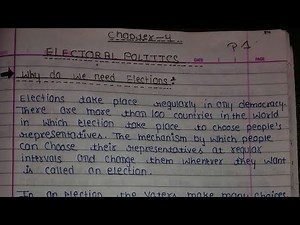 Chapter-4
P 1
ELECTORAL POLITICS
→ Why do we need Elections?
Elections take place regularly in any democracy.
There are more than 100 countries in the world
in which election take place to choose people's
representatives. The mechanism by which people
can choose their representatives at regular
intervals and change them whenever they want
is called an election.
In an election the voters make many choices